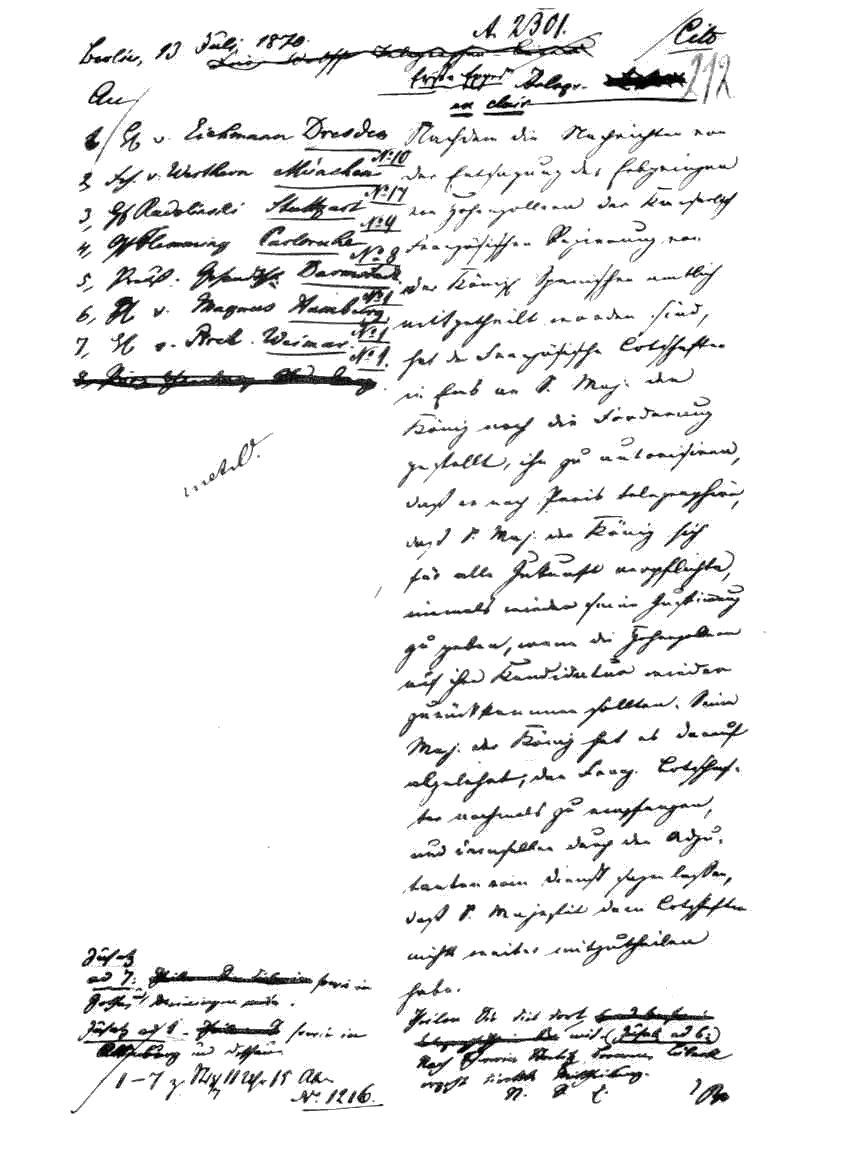 A. 2301.
Cito
Berlin, 13 Juli 1870.
212
en clair
An
1, v. Eichmann Dresden
No 10
2, Frh. v. Werthern München
No 17
3, Gf Radolinski Stuttgart
No 4
4, Gf Flemming Carlsruhe
No 8
5, Preuß. Darmstadt
No 1
6, v. Magnus Hamburg
No 1
7, v. Weimar
No 1
Nachdem die Nachrichten von
der Entsagung des Erbprinzen
von Hohenzollern der Kaiserlich
Französischen Regierung von
der Königl Spanischen amtlich
mitgetheilt worden sind,
hat der Französische Botschafter
in Ems an S. Maj. den
König noch die Forderung
gestellt, ihn zu autorisiren,
daß er nach Paris telegraphire,
daß S. Maj. der König sich
für alle Zukunft verpflichte,
niemals wieder seine Zustimmung
zu geben, wenn die Hohenzollern
auf ihre Kandidatur wieder
zurückkommen sollten. Seine
Maj. der König hat es darauf
abgelehnt, den Franz. Botschaf-
ter nochmals zu empfangen,
und demselben durch den Adju-
tanten vom Dienst sagen lassen,
daß S. Majestät dem Botschafter
nichts weiter mitzutheilen
habe.
Zusatz
ad 7: sowie in
Zusatz ad 8 sowie in
Altenburg und Dessau
1-7 11 Uhr 15
No. 1216.
Theilen Sie dies dort
mit (Zusatz ad 6: